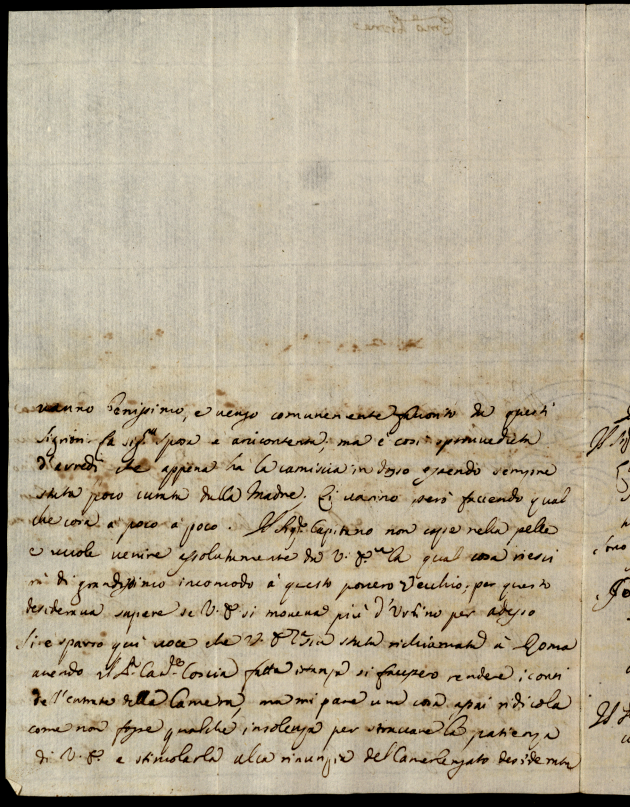 vanno benissimo, e vengo comunemente favorito da questi
Signori. La Sig.ra sposa è arcicontenta, ma è così sproveduta
d'arredi che appena ha la camisia in dosso essendo sempre
stata poco curata dalla Madre. Li vanno però facendo qual
che cosa à poco à poco. Il Sig.r Capitano non cape nella pelle
e vuole venire assolutamente da V. E.za la qual cosa riesci
rà di grandissimo incomodo à questo povero Vecchio; per questo
desiderava sapere se V. E. si moveva più d'Urbino per adesso
Si è sparso quì voce che V. E. sia stata richiamata à Roma
avendo il S.r Card.le Coscia fatta istanza si facessero rendere i conti
dell'entrate della Camera, ma mi pare una cosa assai ridicola
come non fosse qualche insolenza per straccare la patienza
di V. E. e stimolarla alla rinunzia del Camerlengato desiderata